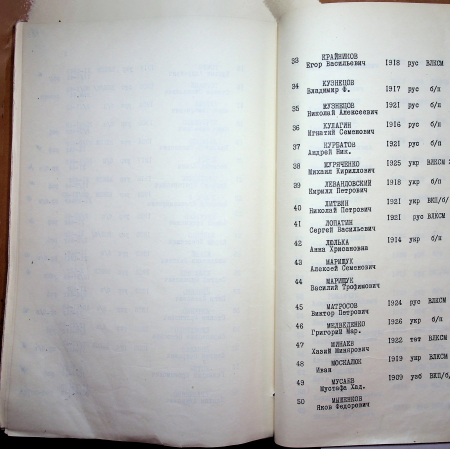 33 КРАЙНИКОВ
Егор Васильевич 1918 рус ВЛКСМ
34 КУЗНЕЦОВ
Владимир Ф. 1917 рус б/п
35 КУЗНЕЦОВ 1921 рус б/п
Николай Алексеевич
36 КУЛАГИН 1916 рус б/п
Игнатий Семенович
37 КУРБАТОВ 1921 рус б/п
Андрей Ник.
38 МУРЯЧЕНКО 1925 укр ВЛКСМ
Михаил Кириллович
39 ЛЕВАНДОВСКИЙ 1918 укр б/п
Кирилл Петрович
40 ЛИТВИН 1921 укр ВКП/б/
Николай Петрович
41 ЛОПАТИН 1921 рус ВЛКСМ
Сергей Васильевич
42 ЛЮЛЬКА 1914 укр б/п
Анна Хрисановна
43 МАРИЩУК
Алексей Семенович
44 МАРИЩУК
Василий Трофимович
45 МАТРОСОВ 1924 рус ВЛКСМ
Виктор Петрович
46 МЕДВЕДЕНКО 1926 укр б/п
Григорий Мар.
47 МИНАЕВ 1922 тат ВЛКСМ
Хазий Минярович
48 МОСКАЛЮК 1919 укр ВЛКСМ
Иван
49 МУСАЕВ 1909 узб ВКП/б/
Мустафа Хад.
50 МЫШЕНКОВ
Яков Федорович